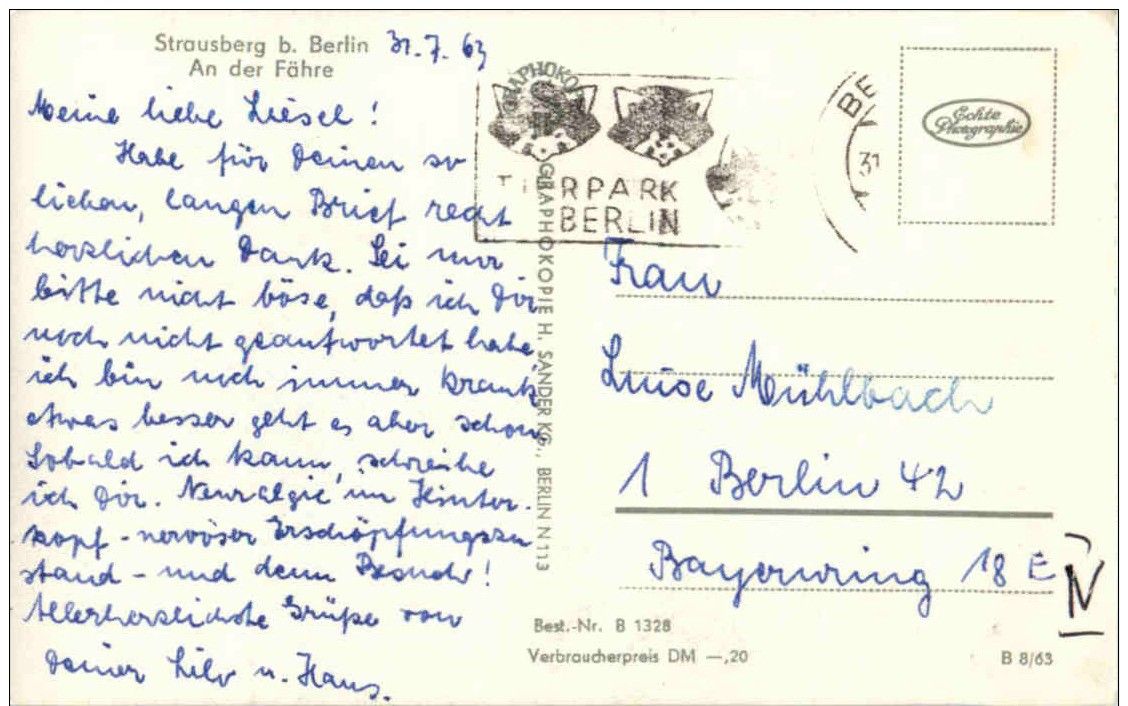 Strausberg b. Berlin 31.7.63
An der Fähre
Meine liebe Liesel!
Habe für Deinen so
lieben, langen Brief recht
herzlichen Dank. Sei mir
bitte nicht böse, daß ich Dir
noch nicht geantwortet habe,
ich bin noch immer krank,
etwas besser geht es aber schon.
Sobald ich kann, schreibe
ich Dir. Neuralgie im Hinter-
kopf - nervöser Erschöpfungszu
stand - und denn Besuch!
Allerherzlichste Grüße von
Deiner Lilo u. Haus.
GRAPHOKOPIE
GRAPHOKOPIE H. SANDER KG., BERLIN N 113
TIERPARK
BERLIN
BE
31
Echte
Photographie
Frau
Luise Mühlbach
1 Berlin 42
Bayernring 18 E
N
Best.-Nr. B 1328
Verbraucherpreis DM —,20
B 8/63